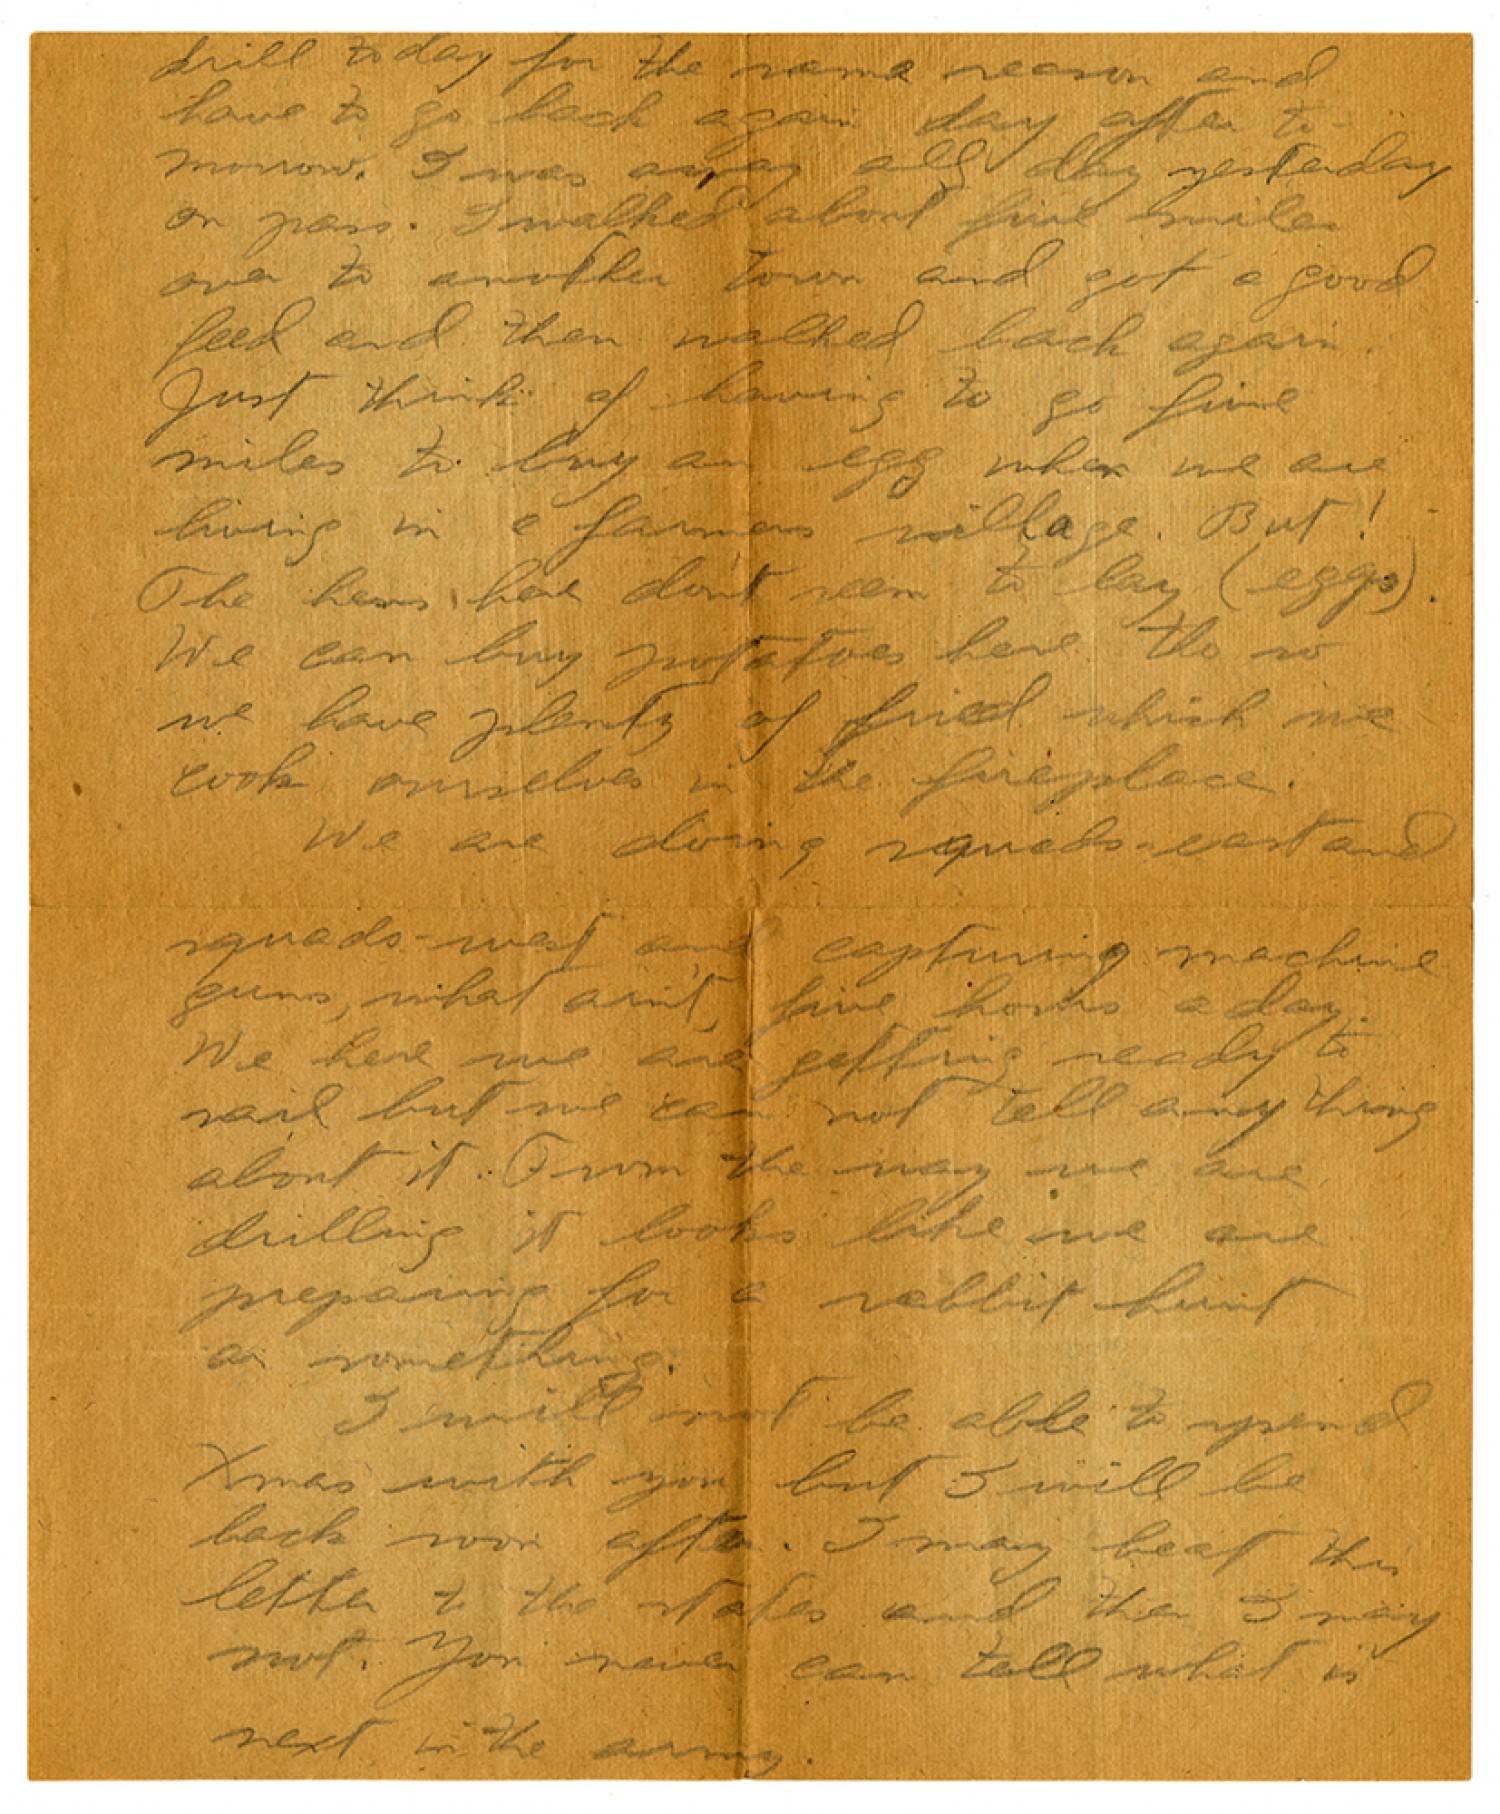 drill today for the same reason and
have to go back again day after to-
morrow. I was away all day yesterday
on pass. I walked about five miles
over to another town and got a good
feed and then walked back again.
Just think of having to go five
miles to buy an egg when we are
living in a farmers village. But!
The hens here don't seem to lay (eggs).
We can buy potatoes here tho so
we have plenty of fried which we
cook ourselves in the fireplace.
We are doing squads-east and
squads-west and capturing machine
guns, what ain't, five hours a day.
We here we are getting ready to
sail but we can not tell any thing
about it. From the way we are
drilling it looks like we are
preparing for a rabbit hunt
or something.
I will not be able to spend
Xmas with you but I will be
back soon after. I may beat this
letter to the states and then I may
not. You never can tell what is
next in the army.